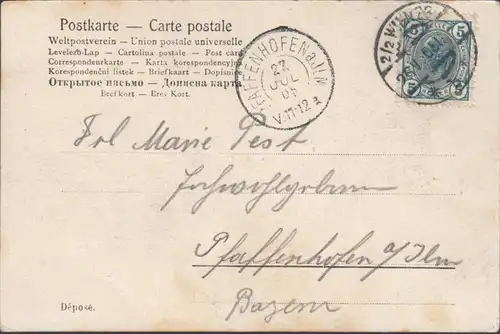 Postkarte — Carte postale
Weltpostverein — Union postale universelle
Levelező-Lap — Cartolina postale — Post card
Correspondenzkarte — Karta korespondencyjna
Korespondenční lístek — Briefkaart — Dopisnice
Открытое письмо — Дописна карта
Brefkort — Brev Kort.
PFAFFENHOFEN a/ILM
27.
JUL
V.11-12 a
2/2 WIEN
5 5
Frl Marie Pest
Hochwohlgeboren
Pfaffenhofen a/Ilm
Bayern
Déposé.